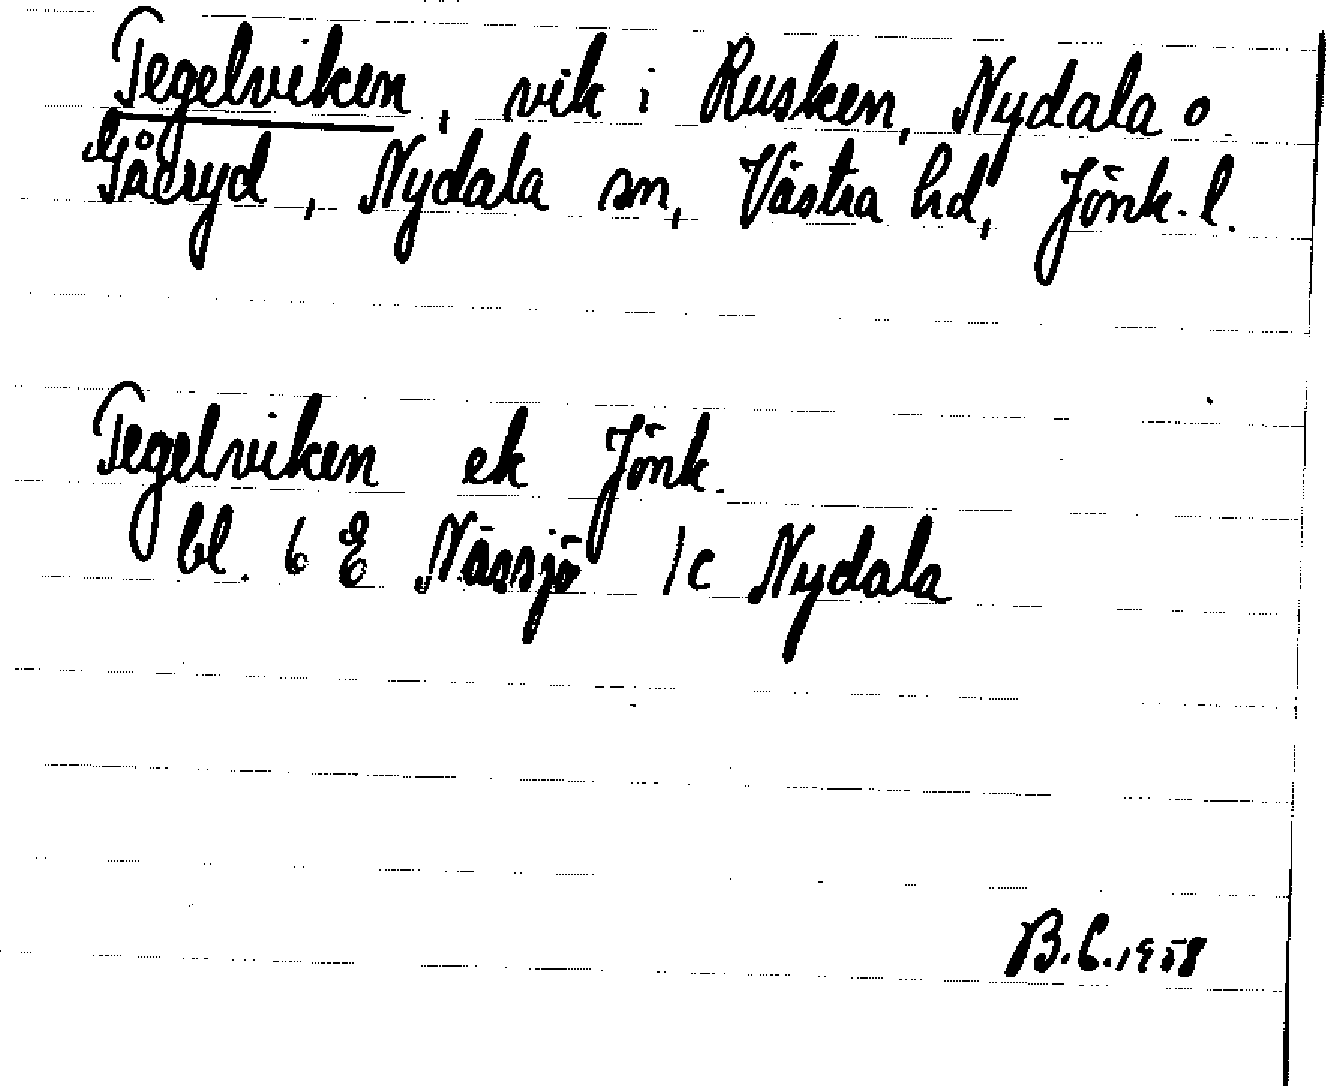 Tegelviken, vik i Rusken, Nydala o.
Gåeryd, Nydala sn, Västra hd, Jönk. l.
Tegelviken ek Jönk.
bl. 6 E Nässjö 1c Nydala
B.C. 1958